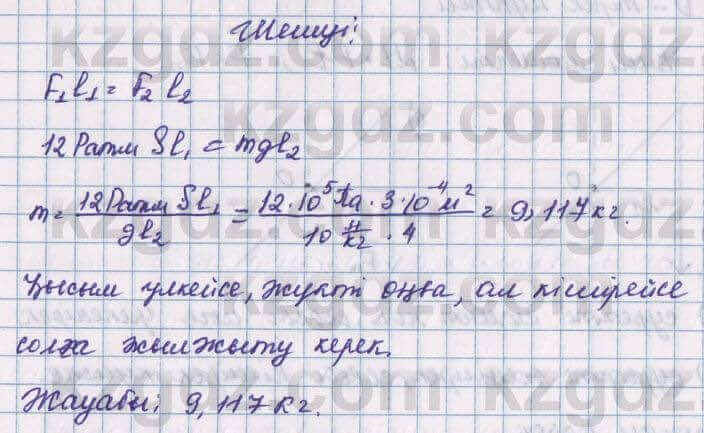 Шешуі:
F₁l₁ = F₂l₂
12Pатм Sl₁ = mgl₂
m = 12Pатм Sl₁ / gl₂ = 12·10⁵Па·3·10⁻⁴м² / 10 Н/кг · 4 = 9,117кг.
Қысым үлкейсе, жүкті оңға, ал кішірейсе
солға жылжыту керек.
Жауабы: 9,117кг.
kzgdz.com